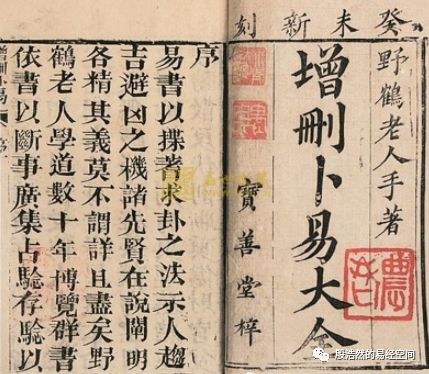 癸未新刻
野鶴老人手著
增刪卜易大全
寶善堂梓
農
序
易書以揲蓍求卦之法示人趨
吉避凶之機諸先賢在說闡明
各精其義莫不謂詳且盡矣野
鶴老人學道數十年博覽群書
依書以斷事廣集占驗存驗以
增刪卜易
序
殷浩然的易经空间